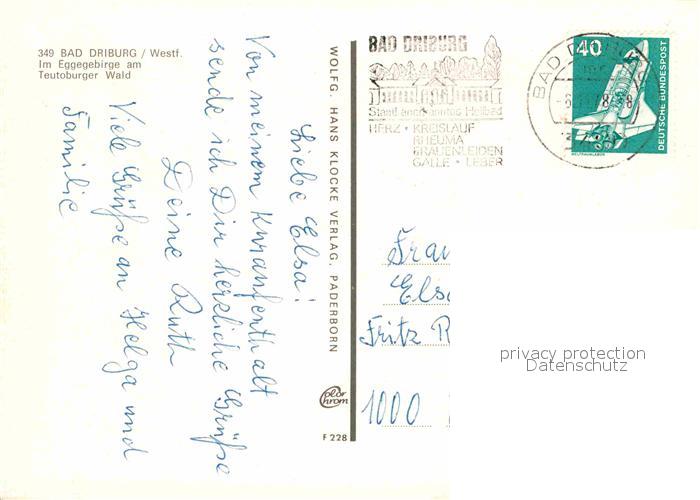 349 BAD DRIBURG / Westf.
Im Eggegebirge am
Teutoburger Wald
Liebe Elsa!
Von meinem Kuraufenthalt
sende ich Dir herzliche Grüße
Deine Ruth
Viele Grüße an Helga und
Familie
WOLFG. HANS KLOCKE VERLAG, PADERBORN
F 228
BAD DRIBURG
Heilbad
HERZ · KREISLAUF
RHEUMA
FRAUENLEIDEN
GALLE · LEBER
BAD DRIBU
40
DEUTSCHE BUNDESPOST
Frau
Els
Fritz R
1000
privacy protection
Datenschutz